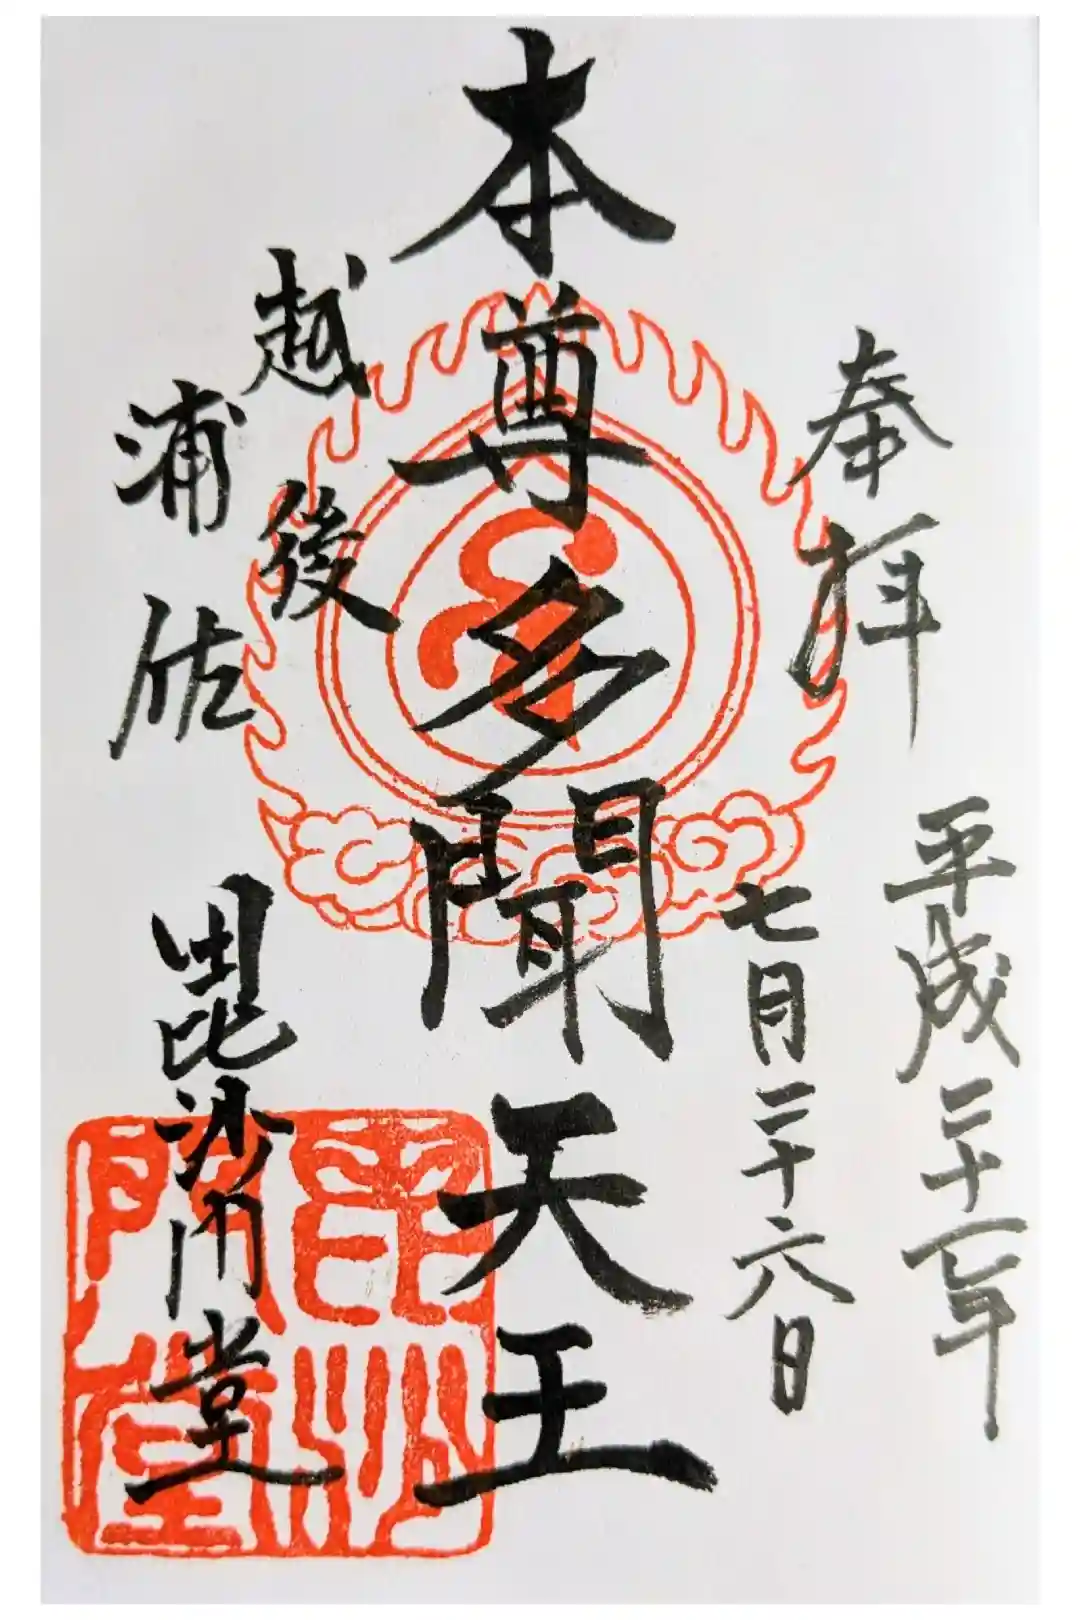 奉拝
平成三十年
七月二十六日
本尊多聞天王
越後
浦佐
毘沙門堂
毘沙
門堂